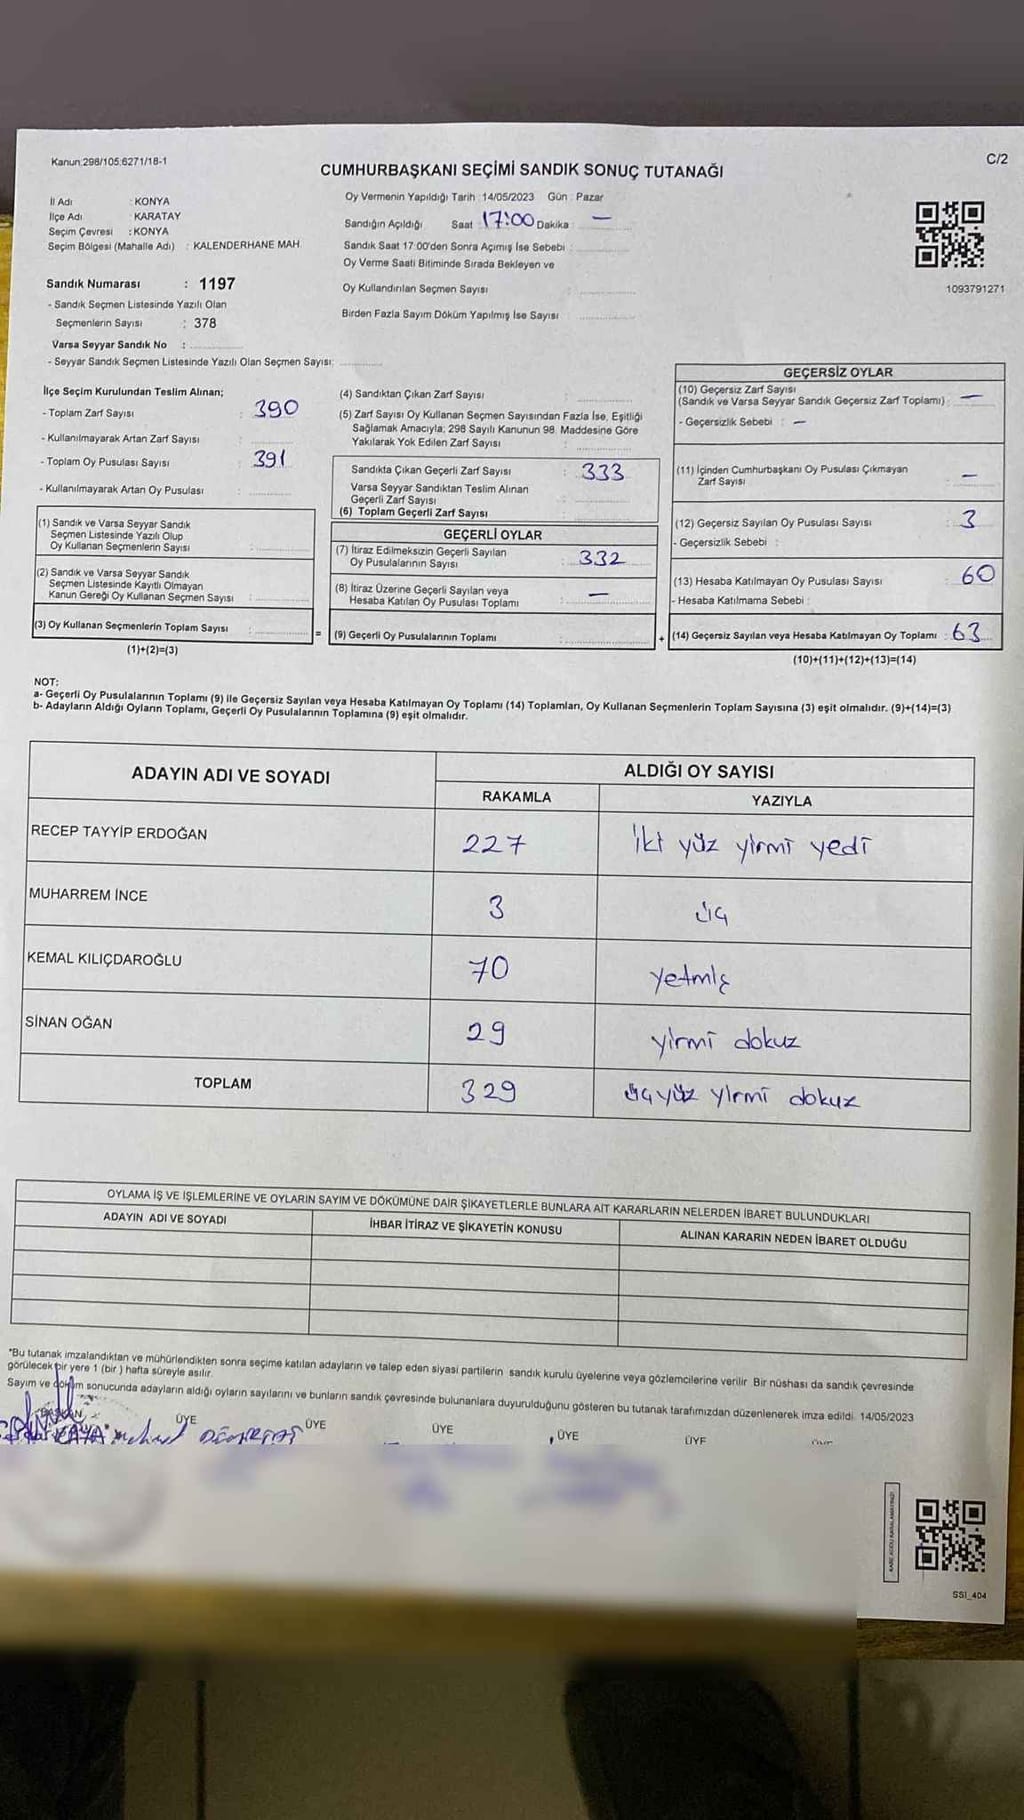 Kanun:298/105;6271/18-1
C/2
CUMHURBAŞKANI SEÇİMİ SANDIK SONUÇ TUTANAĞI
İl Adı : KONYA
İlçe Adı : KARATAY
Seçim Çevresi : KONYA
Seçim Bölgesi (Mahalle Adı) : KALENDERHANE MAH.
Sandık Numarası : 1197
- Sandık Seçmen Listesinde Yazılı Olan
Seçmenlerin Sayısı : 378
Varsa Seyyar Sandık No :
- Seyyar Sandık Seçmen Listesinde Yazılı Olan Seçmen Sayısı:
Oy Vermenin Yapıldığı Tarih : 14/05/2023 Gün : Pazar
Sandığın Açıldığı Saat 17:00 Dakika : —
Sandık Saat 17:00'den Sonra Açımış İse Sebebi :
Oy Verme Saati Bitiminde Sırada Bekleyen ve
Oy Kullandırılan Seçmen Sayısı :
Birden Fazla Sayım Döküm Yapılmış İse Sayısı :
1093791271
İlçe Seçim Kurulundan Teslim Alınan;
- Toplam Zarf Sayısı : 390
- Kullanılmayarak Artan Zarf Sayısı :
- Toplam Oy Pusulası Sayısı : 391
- Kullanılmayarak Artan Oy Pusulası :
(1) Sandık ve Varsa Seyyar Sandık
Seçmen Listesinde Yazılı Olup
Oy Kullanan Seçmenlerin Sayısı :
(2) Sandık ve Varsa Seyyar Sandık
Seçmen Listesinde Kayıtlı Olmayan
Kanun Gereği Oy Kullanan Seçmen Sayısı :
(3) Oy Kullanan Seçmenlerin Toplam Sayısı :
(1)+(2)=(3)
=
(4) Sandıktan Çıkan Zarf Sayısı :
(5) Zarf Sayısı Oy Kullanan Seçmen Sayısından Fazla İse, Eşitliği
Sağlamak Amacıyla; 298 Sayılı Kanunun 98. Maddesine Göre
Yakılarak Yok Edilen Zarf Sayısı :
Sandıkta Çıkan Geçerli Zarf Sayısı : 333
Varsa Seyyar Sandıktan Teslim Alınan
Geçerli Zarf Sayısı :
(6) Toplam Geçerli Zarf Sayısı :
GEÇERLİ OYLAR
(7) İtiraz Edilmeksizin Geçerli Sayılan
Oy Pusulalarının Sayısı : 332
(8) İtiraz Üzerine Geçerli Sayılan veya
Hesaba Katılan Oy Pusulası Toplamı : —
(9) Geçerli Oy Pusulalarının Toplamı :
+
GEÇERSİZ OYLAR
(10) Geçersiz Zarf Sayısı
(Sandık ve Varsa Seyyar Sandık Geçersiz Zarf Toplamı) : —
- Geçersizlik Sebebi : —
(11) İçinden Cumhurbaşkanı Oy Pusulası Çıkmayan
Zarf Sayısı : —
(12) Geçersiz Sayılan Oy Pusulası Sayısı : 3
- Geçersizlik Sebebi :
(13) Hesaba Katılmayan Oy Pusulası Sayısı : 60
- Hesaba Katılmama Sebebi :
(14) Geçersiz Sayılan veya Hesaba Katılmayan Oy Toplamı : 63
(10)+(11)+(12)+(13)=(14)
NOT:
a- Geçerli Oy Pusulalarının Toplamı (9) ile Geçersiz Sayılan veya Hesaba Katılmayan Oy Toplamı (14) Toplamları, Oy Kullanan Seçmenlerin Toplam Sayısına (3) eşit olmalıdır. (9)+(14)=(3)
b- Adayların Aldığı Oyların Toplamı, Geçerli Oy Pusulalarının Toplamına (9) eşit olmalıdır.
ADAYIN ADI VE SOYADI ALDIĞI OY SAYISI
RAKAMLA YAZIYLA
RECEP TAYYİP ERDOĞAN 227 İki yüz yirmi yedi
MUHARREM İNCE 3 üç
KEMAL KILIÇDAROĞLU 70 yetmiş
SİNAN OĞAN 29 yirmi dokuz
TOPLAM 329 üçyüz yirmi dokuz
OYLAMA İŞ VE İŞLEMLERİNE VE OYLARIN SAYIM VE DÖKÜMÜNE DAİR ŞİKAYETLERLE BUNLARA AİT KARARLARIN NELERDEN İBARET BULUNDUKLARI
ADAYIN ADI VE SOYADI İHBAR İTİRAZ VE ŞİKAYETİN KONUSU ALINAN KARARIN NEDEN İBARET OLDUĞU
*Bu tutanak imzalandıktan ve mühürlendikten sonra seçime katılan adayların ve talep eden siyasi partilerin sandık kurulu üyelerine veya gözlemcilerine verilir. Bir nüshası da sandık çevresinde
görülecek bir yere 1 (bir ) hafta süreyle asılır.
Sayım ve döküm sonucunda adayların aldığı oyların sayılarını ve bunların sandık çevresinde bulunanlara duyurulduğunu gösteren bu tutanak tarafımızdan düzenlenerek imza edildi. 14/05/2023
BAŞKAN ÜYE ÜYE ÜYE ÜYE ÜYE
SSI_404